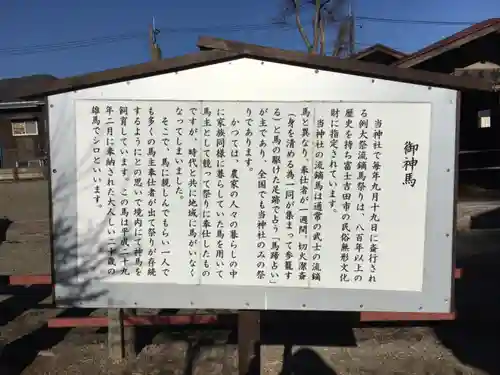 御神馬
当神社で毎年九月十九日に斎行され
る例大祭流鏑馬祭りは、八百年以上の
歴史を持ち富士吉田市の民俗無形文化
財に指定されています。
当神社の流鏑馬は通常の武士の流鏑
馬と異なり、奉仕者が一週間、切火潔斎
（一身を清める為一同が集まって参籠す
る）と馬の駆けた足跡で占う「馬蹄占い」
が主であり、全国でも当神社のみの祭
りであります。
かつては、農家の人々の暮らしの中
に家族同様に暮らしていた馬を用いて
馬主として競って祭りに奉仕したもの
ですが、時代と共に地域に馬がいなく
なってしまいました。
そこで、馬に親しんでもらい一人で
も多くの馬主奉仕者が出て祭りが存続
するようにとの思いで境内にて神馬を
飼育しています。この馬は平成二十九
年二月に奉納された大人しい二十歳の
雄馬でシロといいます。